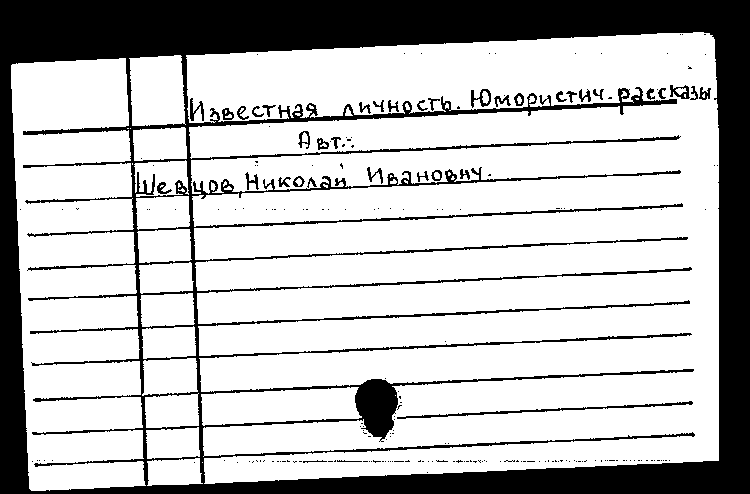 Известная личность. Юмористич. рассказы.
Авт.:
Шевцов, Николай Иванович.